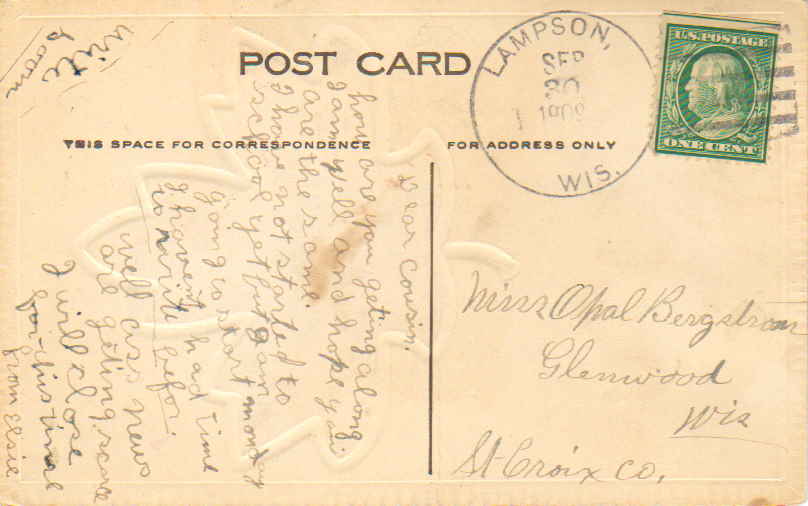 POST CARD
THIS SPACE FOR CORRESPONDENCE
FOR ADDRESS ONLY
LAMPSON,
SEP
30
1909
WIS.
U.S. POSTAGE
ONE CENT
Dear Cousin.
how are you geting along
I am well and hope you
are the same.
I have not started to
school yet but I am
going to start monday
I havent had time
to write befor.
well ass news
are geting scarce
I will close
for this time
from Elsie
write
soon
Miss Opal Bergstrom
Glenwood
Wis
St Croix Co.